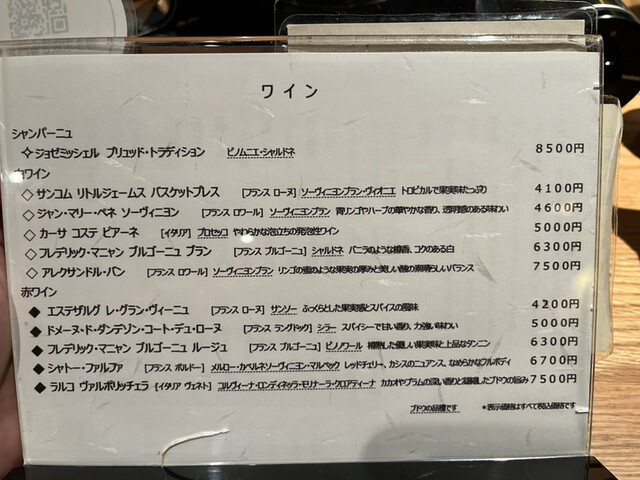 ワイン
シャンパーニュ
✧ジョゼミッシェル ブリュッド・トラディション ピノムニエ・シャルドネ 8500円
白ワイン
◇サンコム リトルジェームス バスケットプレス [フランス ローヌ] ソーヴィニヨンブラン・ヴィオニエ トロピカルで果実味たっぷり 4100円
◇ジャン・マリー・ペネ ソーヴィニヨン [フランス ロワール] ソーヴィニヨンブラン 青リンゴやハーブの華やかな香り、透明感のある味わい 4600円
◇カーサ コステ ピアーネ [イタリア] プロセッコ やわらかな泡立ちの発泡性ワイン 5000円
◇フレデリック・マニャン ブルゴーニュ ブラン [フランス ブルゴーニュ] シャルドネ バニラのような樽香、コクのある白 6300円
◇アレクサンドル・バン [フランス ロワール] ソーヴィニヨンブラン リンゴの蜜のような果実の厚みと美しい酸の素晴らしいバランス 7500円
赤ワイン
◆エステザルグ レ・グラン・ヴィーニュ [フランス ローヌ] サンソー ふっくらとした果実感とスパイスの風味 4200円
◆ドメーヌ・ド・ダンデゾン・コート・デュ・ローヌ [フランス ラングドック] シラー スパイシーで甘い香り、力強い味わい 5000円
◆フレデリック・マニャン ブルゴーニュ ルージュ [フランス ブルゴーニュ] ピノノワール 樽熟した優しい果実味と上品なタンニン 6300円
◆シャトー・ファルファ [フランス ボルドー] メルロー・カベルネソーヴィニヨン・マルベック レッドチェリー、カシスのニュアンス、なめらかなフルボディ 6700円
◆ラルコ ヴァルポリッチェラ [イタリア ヴェネト] コルヴィーナ・ロンディネッラ・モリナーラ・クロアティーナ カカオやプラムの深い香りと凝縮したブドウの旨み 7500円
ブドウの品種です *表示価格はすべて税込価格です